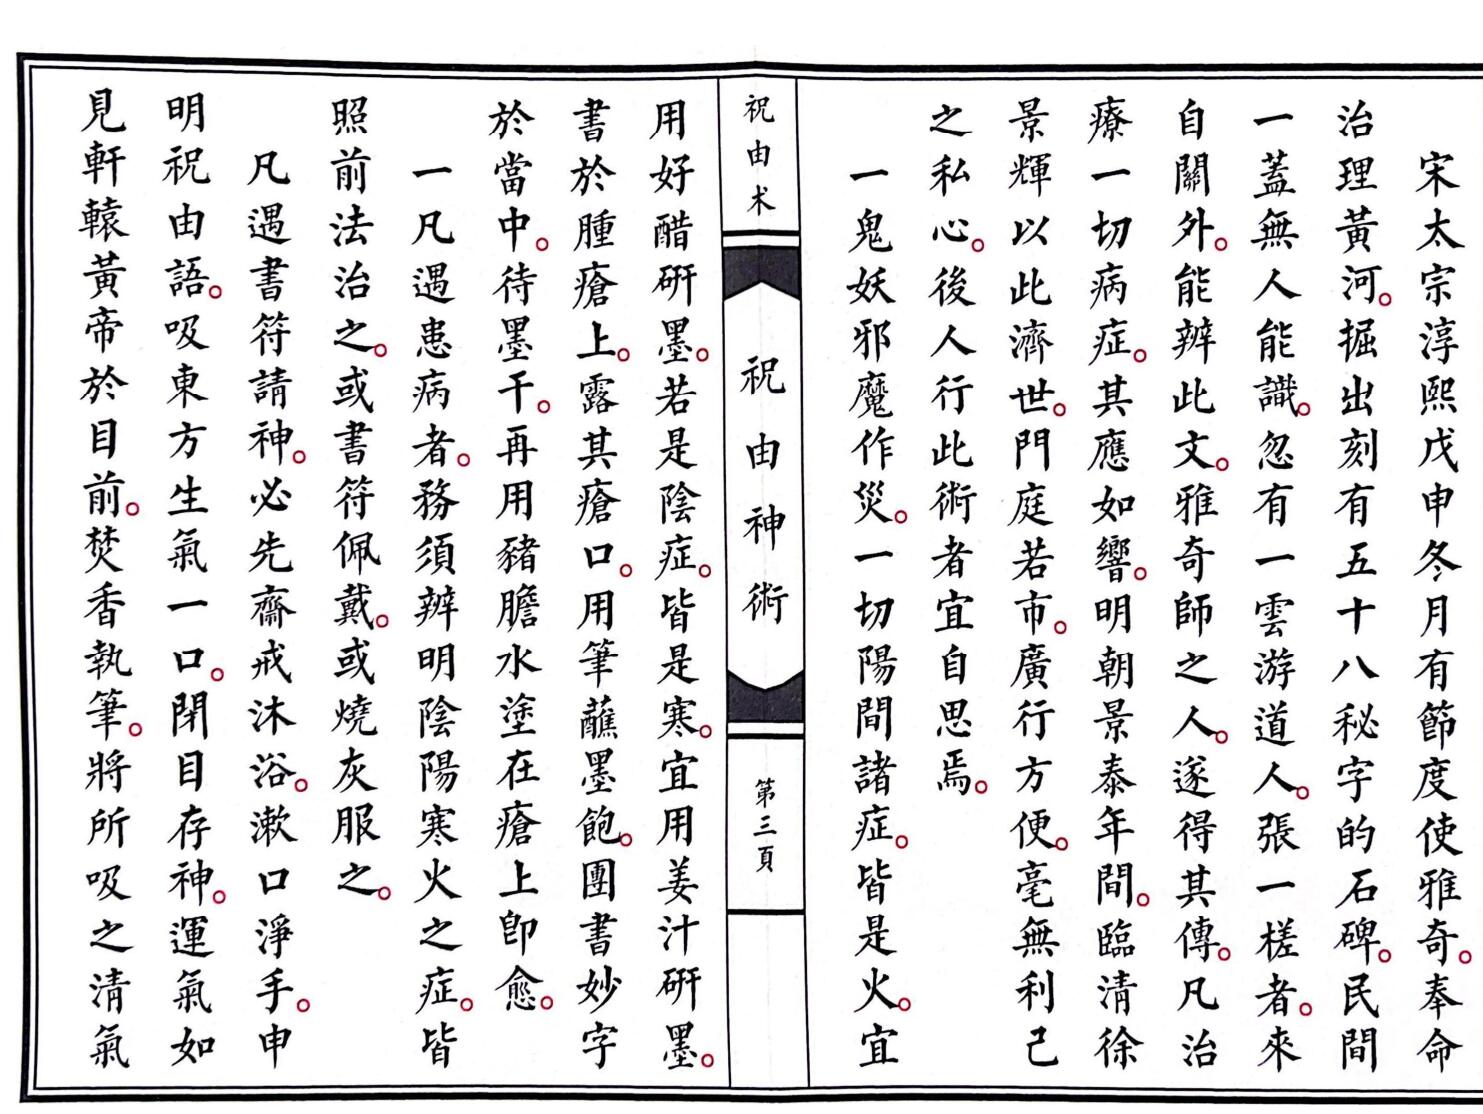 宋太宗淳熙戊申冬月有節度使雅奇。奉命
治理黃河。掘出刻有五十八秘字的石碑。民間
一蓋無人能識。忽有一雲游道人。張一槎者。來
自關外。能辨此文。雅奇師之人。遂得其傳。凡治
療一切病症。其應如響。明朝景泰年間。臨清徐
景輝以此濟世。門庭若市。廣行方便。毫無利己
之私心。後人行此術者宜自思焉。
一鬼妖邪魔作災。一切陽間諸症。皆是火。宜
祝由术
祝由神術
第三頁
用好醋研墨。若是陰症。皆是寒。宜用姜汁研墨。
書於腫瘡上。露其瘡口。用筆蘸墨飽。團書妙字
於當中。待墨干。再用豬膽水塗在瘡上即愈。
一凡遇患病者。務須辨明陰陽寒火之症。皆
照前法治之。或書符佩戴。或燒灰服之。
凡遇書符請神。必先齋戒沐浴。漱口淨手。申
明祝由語。吸東方生氣一口。閉目存神。運氣如
見軒轅黃帝於目前。焚香執筆。將所吸之清氣